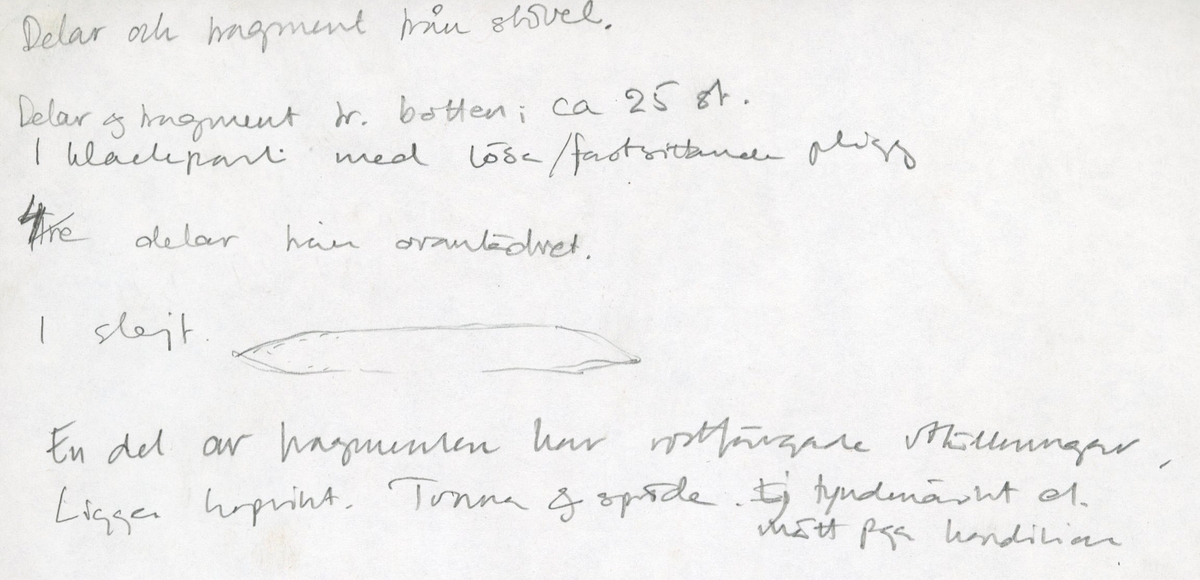 Delar och fragment från stövel.
Delar & fragment fr. botten; ca 25 st.
1 klackparti med lösa/fastsittande pligg
4 delar från ovanlädret.
1 slejf.
En del av fragmenten har rostfärgade utfällningar,
Ligger hopvikt. Tunna & spröda. Ej fyndmärkt el.
mått pga kondition